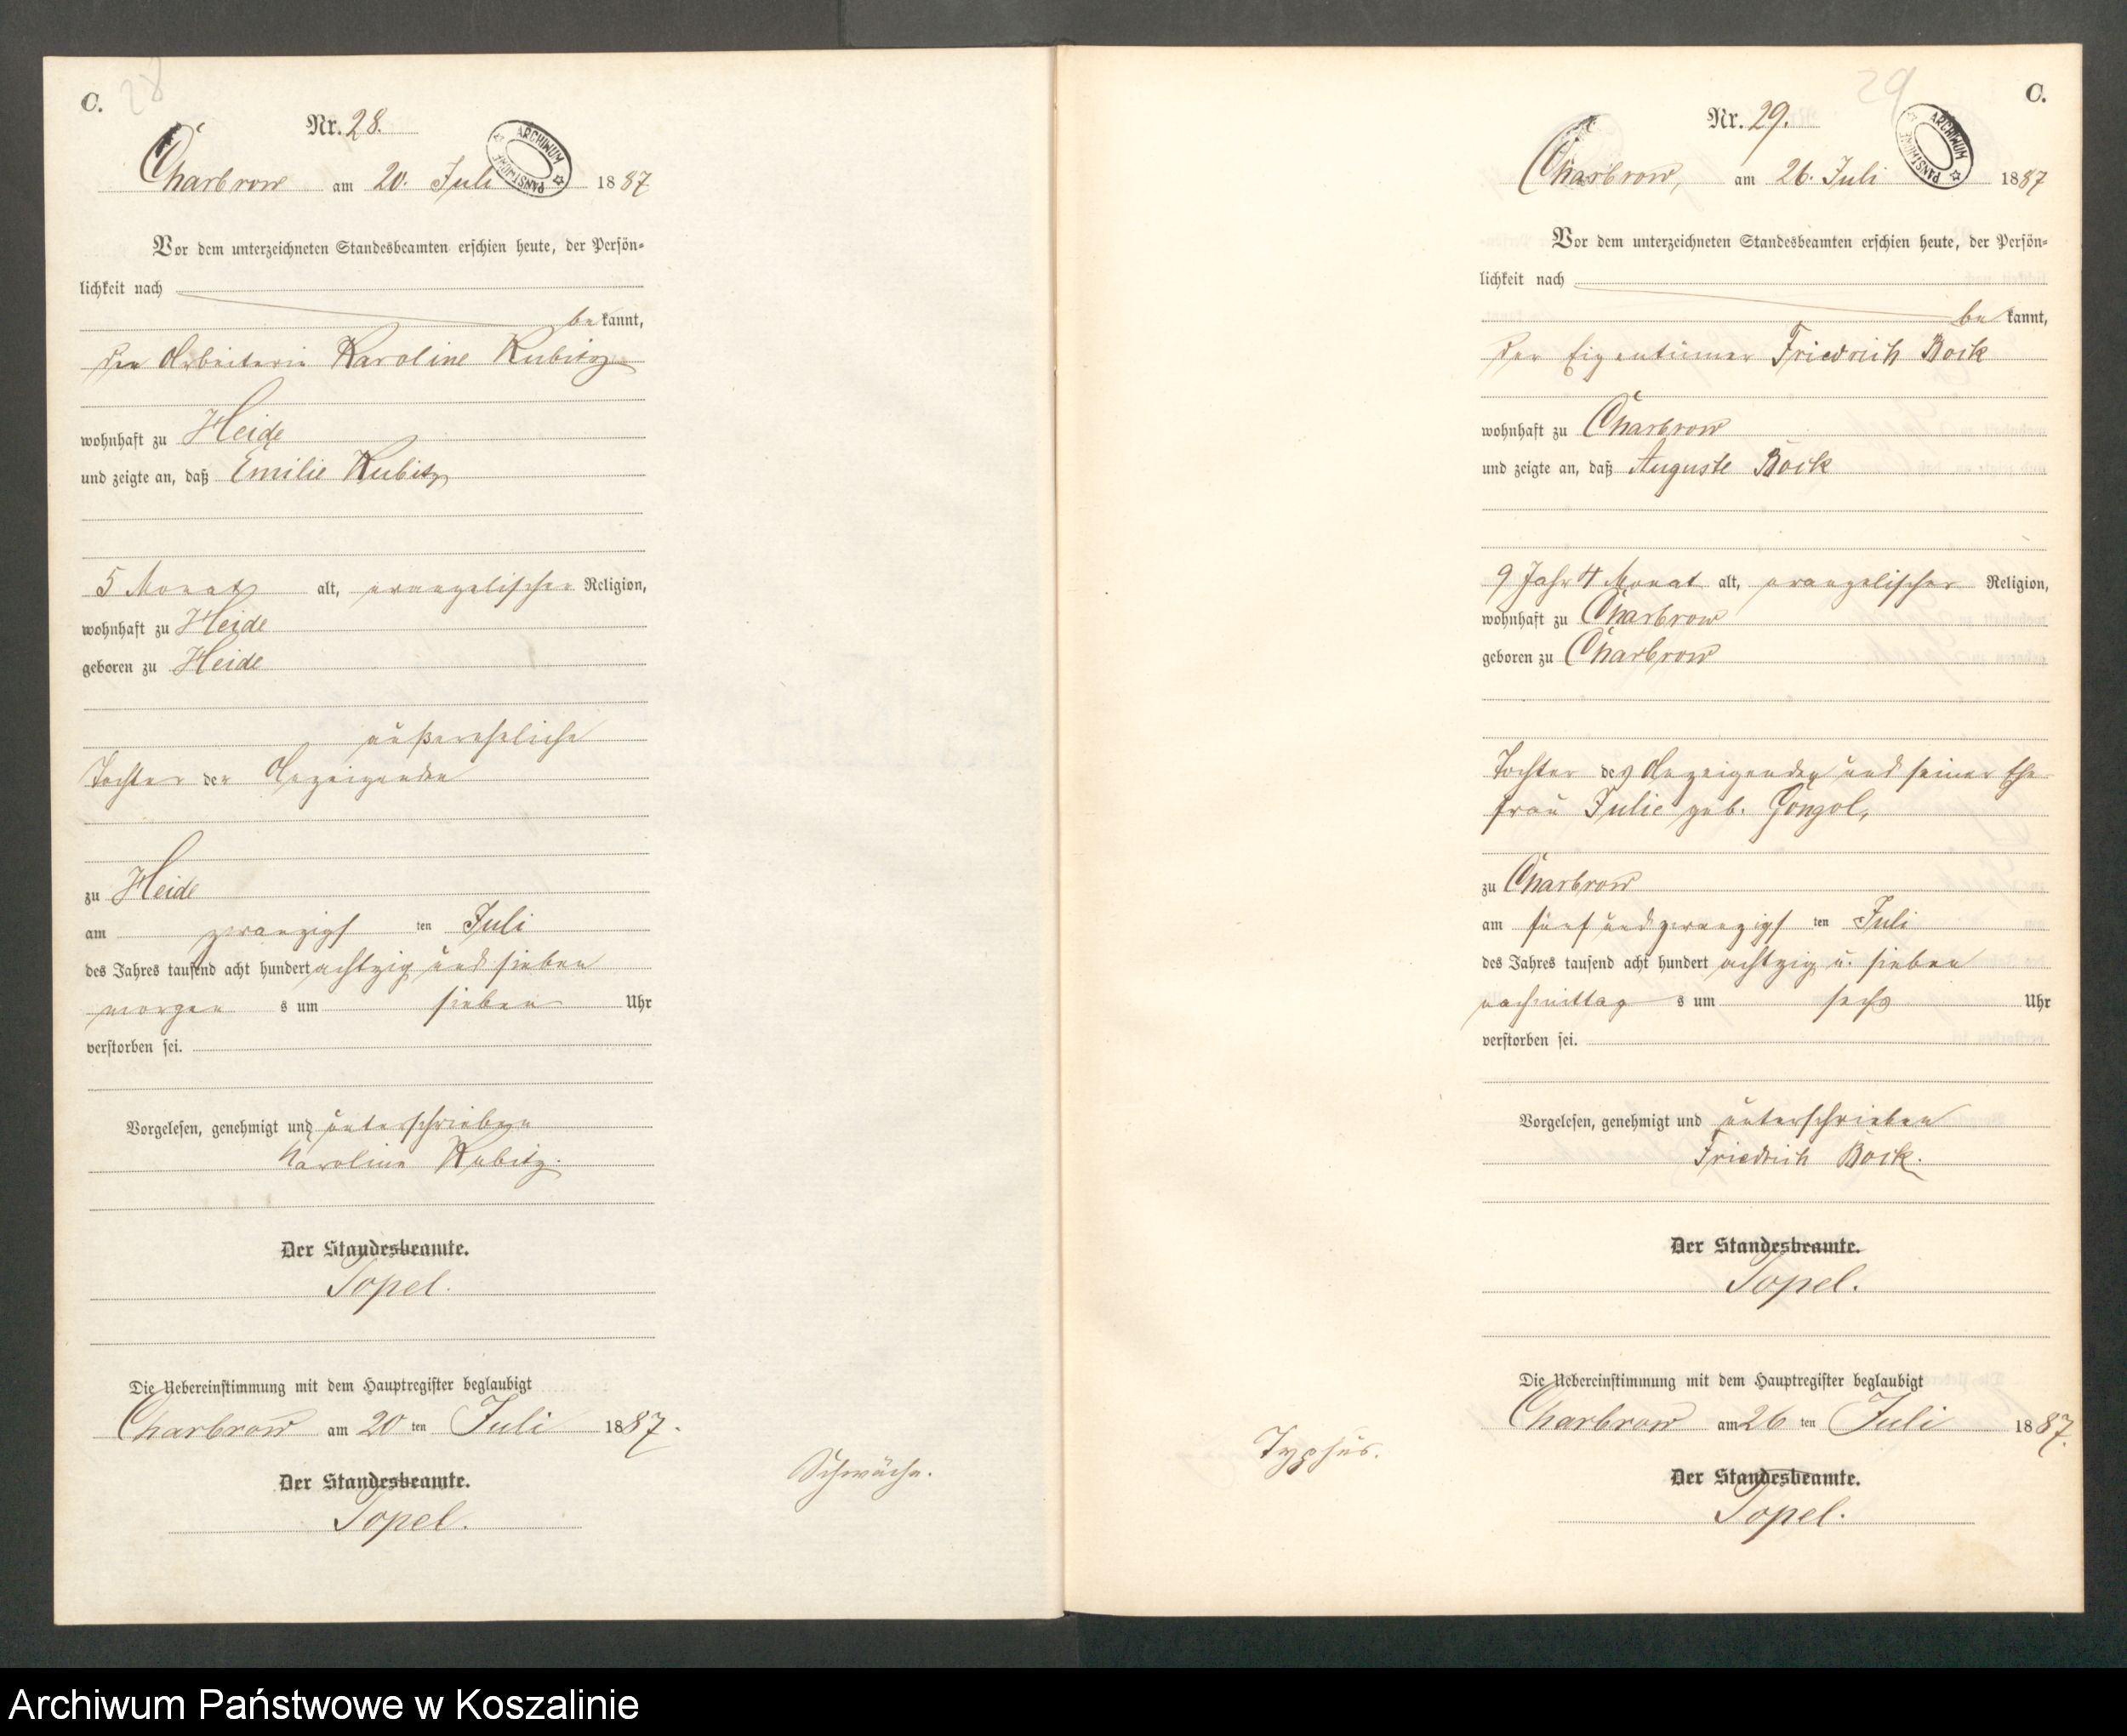 C. 28
Nr. 28.
ARCHIWUM PAŃSTWOWE
Charbrow am 20. Juli 1887
Vor dem unterzeichneten Standesbeamten erschien heute, der Persön-
lichkeit nach
bekannt,
die Arbeiterin Karoline Kubitz
wohnhaft zu Heide
und zeigte an, daß Emilie Kubitz
5 Monat alt, evangelischer Religion,
wohnhaft zu Heide
geboren zu Heide
außereheliche
Tochter der Anzeigenden
zu Heide
am zwanzigsten Juli
des Jahres tausend acht hundert achtzig und sieben
morgens um sieben Uhr
verstorben sei.
Vorgelesen, genehmigt und unterschrieben
Karoline Kubitz.
Der Standesbeamte.
Topel.
Die Uebereinstimmung mit dem Hauptregister beglaubigt
Charbrow am 20 ten Juli 1887.
Der Standesbeamte.
Topel.
Schwäche.
29 C.
Nr. 29.
ARCHIWUM PAŃSTWOWE
Charbrow, am 26. Juli 1887
Vor dem unterzeichneten Standesbeamten erschien heute, der Persön-
lichkeit nach
bekannt,
der Eigentümer Friedrich Bock
wohnhaft zu Charbrow
und zeigte an, daß Auguste Bock
9 Jahr 4 Monat alt, evangelischer Religion,
wohnhaft zu Charbrow
geboren zu Charbrow
Tochter des Anzeigenden und seiner Ehe
frau Julie geb. Gongol,
zu Charbrow
am fünf und zwanzigsten Juli
des Jahres tausend acht hundert achtzig u. sieben
nachmittags um sechs Uhr
verstorben sei.
Vorgelesen, genehmigt und unterschrieben
Friedrich Bock.
Der Standesbeamte.
Topel.
Die Uebereinstimmung mit dem Hauptregister beglaubigt
Charbrow am 26 ten Juli 1887.
Typhus.
Der Standesbeamte.
Topel.
Archiwum Państwowe w Koszalinie